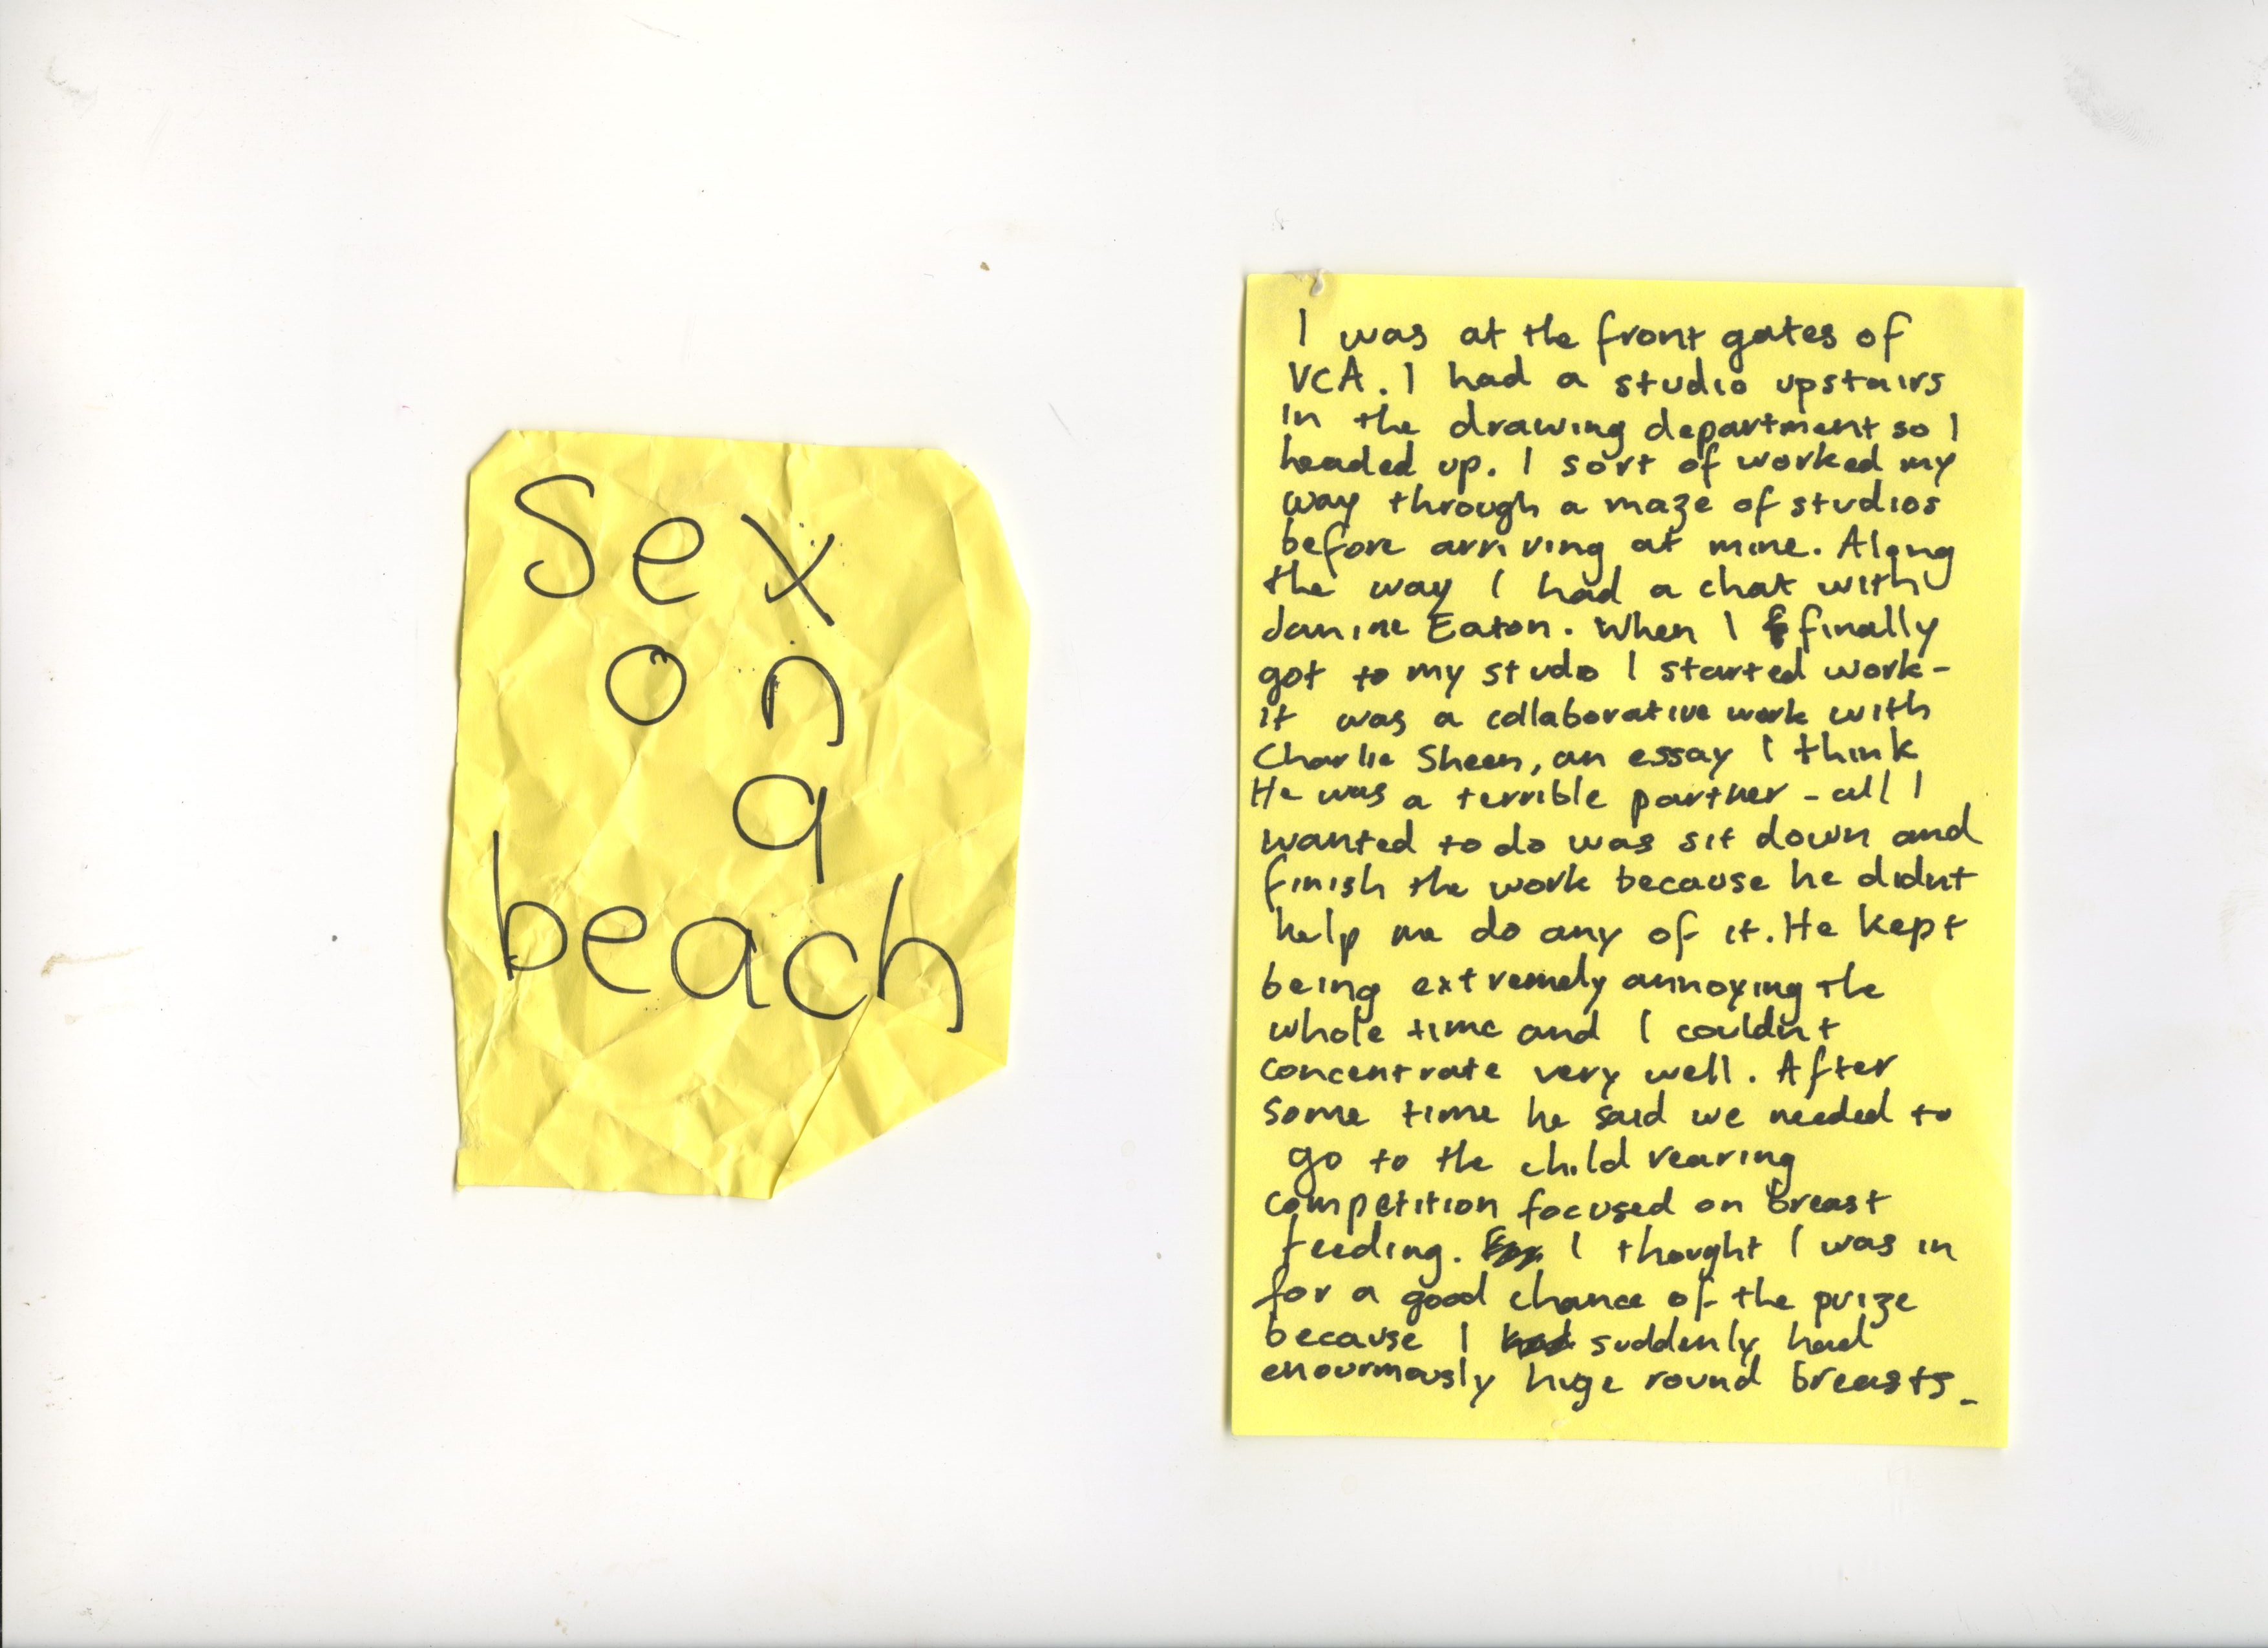 Sex
on
a
beach
I was at the front gates of
VCA. I had a studio upstairs
in the drawing department so I
headed up. I sort of worked my
way through a maze of studios
before arriving at mine. Along
the way I had a chat with
Janine Eaton. When I finally
got to my studo I started work -
it was a collaborative work with
Charlie Sheen, an essay I think
He was a terrible partner - all I
wanted to do was sit down and
finish the work because he didnt
help me do any of it. He kept
being extremely annoying the
whole time and I couldnt
concentrate very well. After
some time he said we needed to
go to the child rearing
competition focused on breast
feeding. I thought I was in
for a good chance of the prize
because I suddenly had
enourmously huge round breasts -